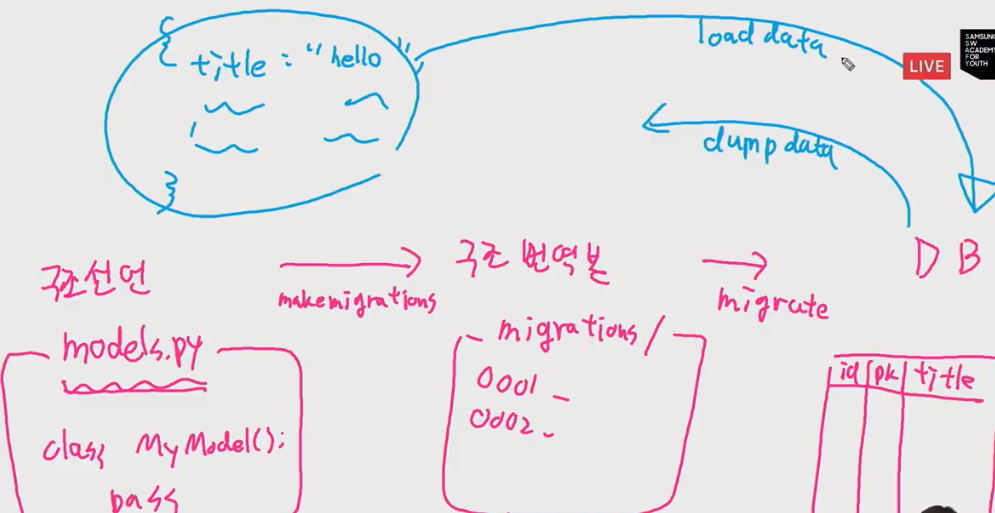 {
title : "hello"
}
load data
dump data
LIVE
SAMSUNG
SW
ACADEMY
FOR
YOUTH
구조선언
makemigrations
구조 번역본
migrate
D B
models.py
class MyModel():
pass
migrations/
0001_
0002_
id pk title